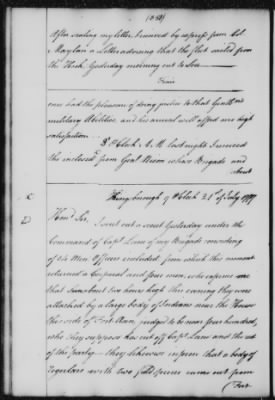 (153)
After sealing my letter I received by express from Col.
a Letter advising that the fleet sailed from
the Hook Yesterday morning out to Sea
one had the pleasure of doing justice to that Gentns
military Abilities and his arrival will afford me high
satisfaction
8 o'Clock A. M. last night I received
the inclosed from Genl Nixon whose Brigade and
about
C
Kingsborough 9 oClock 21st of July 1777
D
Hond Sir, I sent out a scout Yesterday under the
Command of Capt Lane of my Brigade consisting
of 34 Men Officers excluded from which this moment
returned a Corporal and four men, who informs me
that Time about two hours high this evening they were
attacked by a large body of Indians near the House
this side of Fort Ann, judged to be near four hundred,
who they suppose has cut off Capt Lane and the rest
of the party — they likewise inform that a body of
regulars with two field pieces came out from
Fort